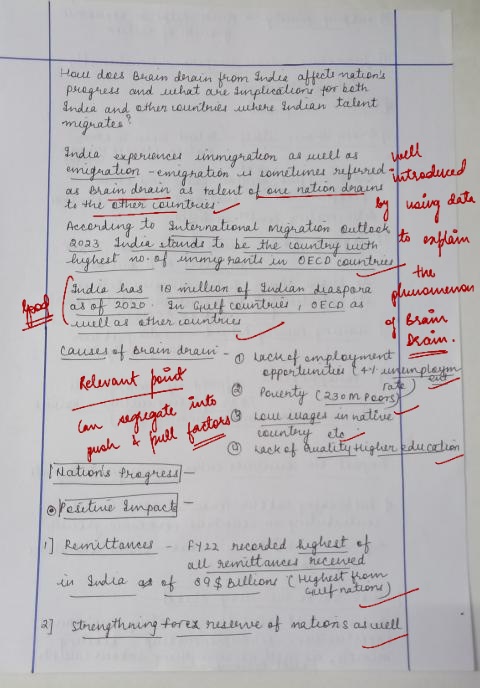 How does Brain drain from India affects nation's
progress and what are implications for both
India and other countries where Indian talent
migrates?
India experiences immigration as well as
emigration - emigration is sometimes referred
as Brain drain as talent of one nation drains
to the other countries
According to International Migration Outlook
2023 India stands to be the country with
highest no. of immigrants in OECD countries
well
introduced
by using data
to explain
the
phenomenon
of Brain
Drain.
Good
India has 18 million of Indian diaspora
as of 2020. In Gulf countries, OECD as
well as other countries
Causes of Brain drain - ① Lack of employment
opportunities (4% unemployment
rate)
② Poverty (230M Poors)
③ Low wages in native
country etc
④ Lack of Quality Higher education
Relevant point
Can segregate into
push & pull factors
Nation's Progress -
Positive Impact -
1] Remittances - FY22 recorded highest of
all remittances received
in India as of 89$ Billions (Highest from
Gulf nations)
2] Strengthning forex reserve of nations as well